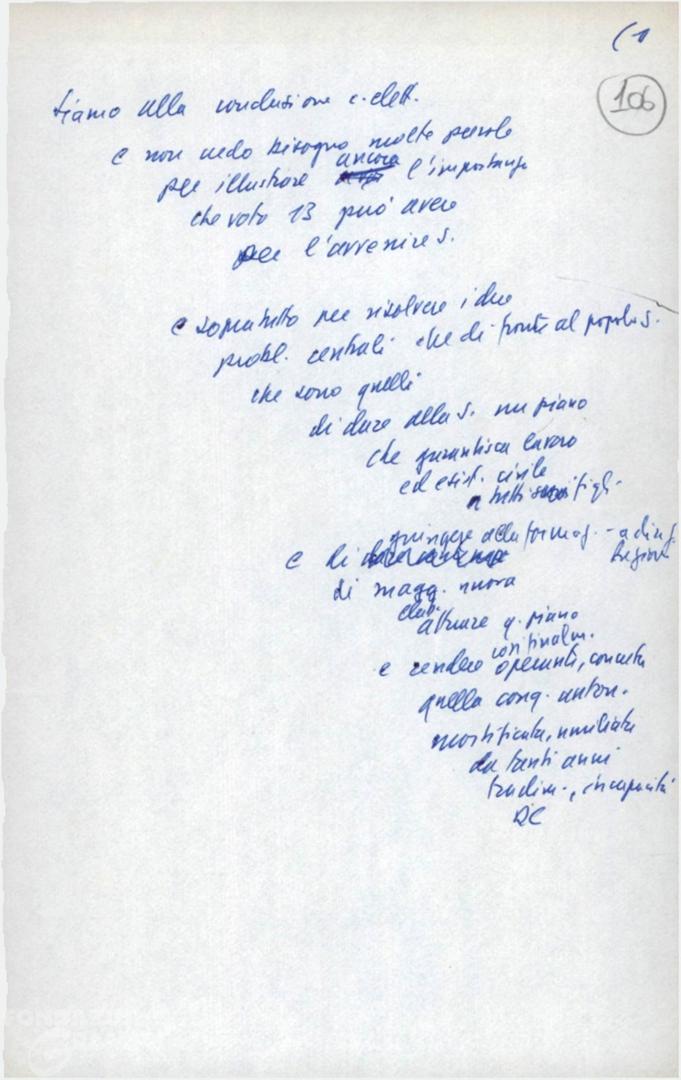 (1
106
siamo alla conclusione c. elett.
e non vedo bisogno molte parole
per illustrare ancora l'importanza
che voto 13 può avere
per l'avvenire S.
e sopratutto per risolvere i due
probl. centrali che di fronte al popolo S.
che sono quelli
di dare alla S. un piano
che garantisca lavoro
ed esist. civile
a tutti suoi figli
e di giungere alla formaz. - a dir.
Regione
di magg. nuova
attuare q. piano
così finalm.
e rendere operante, concreta
quella conq. auton.
mortificata, umiliata
da tanti anni
tradim., incapacità
DC
FONDAZIONE
GRAMSCI